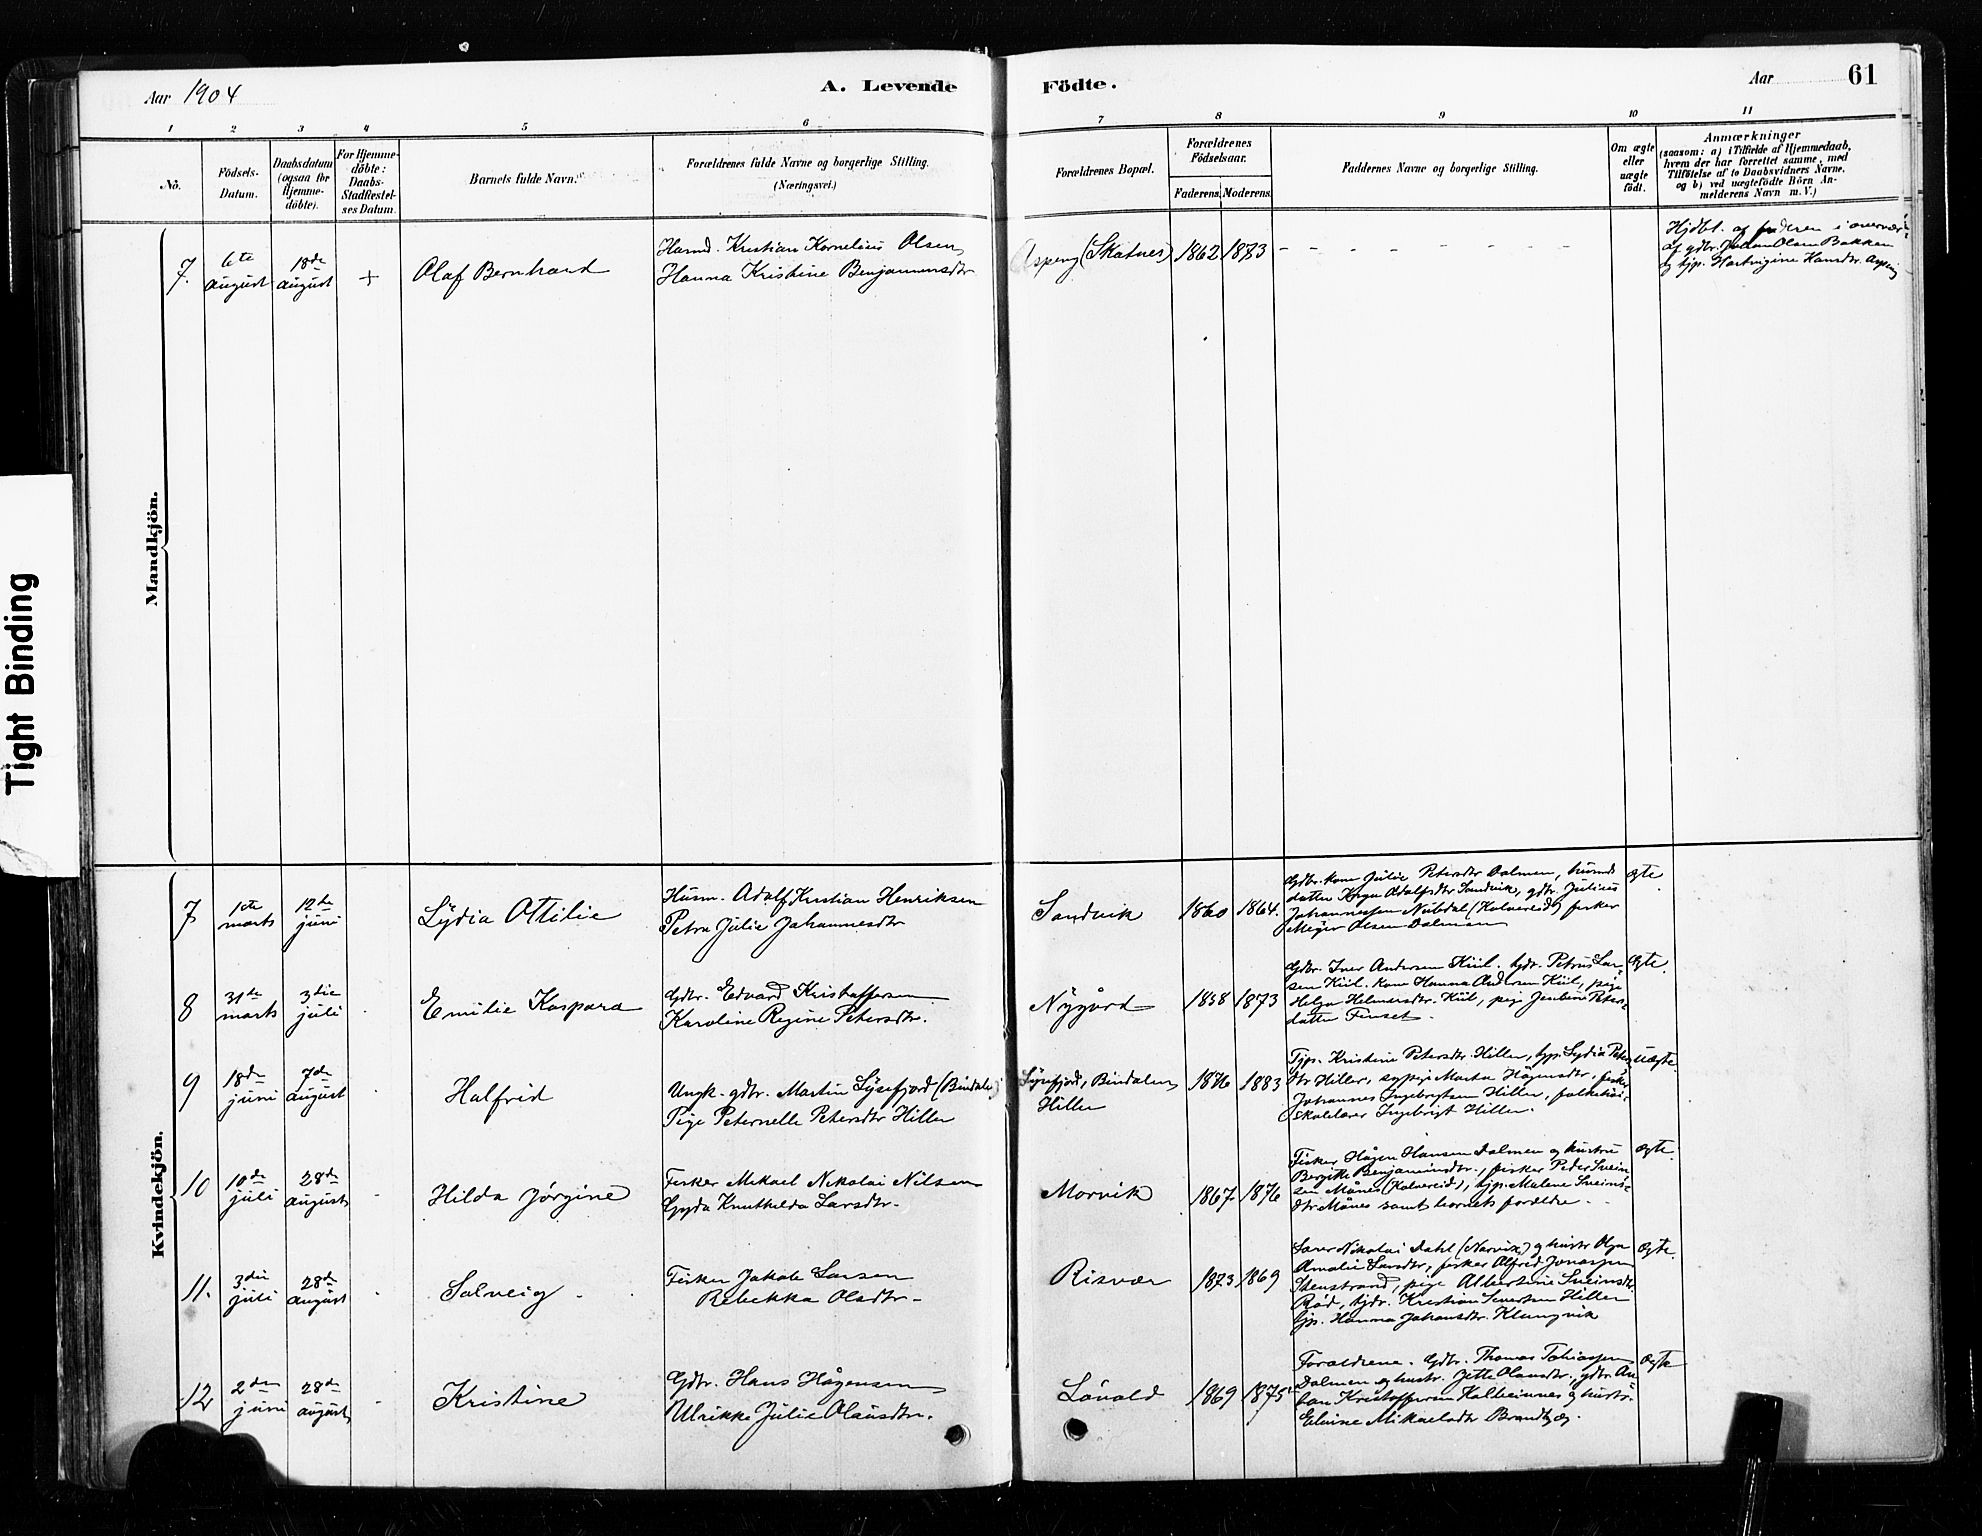 Aar 1904
A. Levende
Födte.
Aar
61
1 2 3 4 5 6 7 8 9 10 11
No.
Födsels-
Datum.
Daabsdatum
(ogsaa for
Hjemme-
döbte).
For Hjemme-
döbte:
Daabs-
Stadfæstel-
ses Datum.
Barnets fulde Navn.
Forældrenes fulde Navne og borgerlige Stilling.
(Næringsvei.)
Forældrenes Bopæl.
Forældrenes
Födselsaar.
Faderens. Moderens.
Faddernes Navne og borgerlige Stilling.
Om ægte
eller
uægte
födt.
Anmærkninger
(saasom: a) i Tilfælde af Hjemmedaab,
hvem der har forrettet samme, med
Tilföielse af to Daabsvidners Navne,
og b) ved uægtefödte Börn An-
melderens Navn m. V.)
Mandkjön.
7.
6te
august
18de
august
+
Olaf Bernhard
Husmd. Kristian Kornelius Olsen
Hanna Kristine Benjaminsdtr
Aspeng (Skatnes)
1862
1873
Hjdbt. af faderen i overvær
af gdbr. Johan Olsen Bakken
og tjp. Hartvigine Hansdtr. Aspeng
Tight Binding
Kvindekjön.
7
1ste
marts
12te
juni
Lydia Ottilie
Husm. Adolf Kristian Henriksen
Petra Julie Johannesdtr
Sandvik
1860
1864.
Gdbr. kone Julie Petersdtr Dalmen, husmds
datter Adolfsdtr Sandvik, gdbr. Julius
Johannessen (Kolvereid), fisker
Meyer Olsen Dalmen
ægte
8
31te
marts
3die
juli
Emilie Kaspara
Gdbr. Edvard Kristoffersen
Karoline Regine Petersdtr.
Nygård
1858
1873
Gdbr. Iver Andersen Kiil. tjdr. Petrus Lar-
sen Kiil. kone Hanna Andersen Kiil, pige
Helga Helmersdtr. Kiil, pige Peters-
datter
ægte.
9
18de
juni
7de
august
Halfrid
Ungk. gdbr. Martin Lysefjord (Bindalen)
Pige Peternelle Petersdtr Hiller
Lysefjord, Bindalen
Hiller
1876
1883
Tjp. Kristine Petersdtr. Hiller, tjp. Lydia Peters-
dtr Hiller, sypige Marta Hågensdtr, fisker
Johannes Ingebrigtsen Hiller, folkehøi-
skolelærer Ingebrigt Hiller.
uægte
10
10de
juli
28de
august
Hilda Jørgine
Fisker Mikael Nikolai Nilsen
Gyda Knuthilda Larsdtr.
Morvik
1867
1876
Fisker Hågen Hansen Dalmen og hustru
Bergitte Benjaminsdtr., fisker Peder Svein-
sen Månes (Kolvereid), tjp. Malene Sveins-
dtr Månes samt barnets forældre.
ægte.
11.
3die
juli
28de
august
Solveig
Fisker Jakob Larsen
Rebekka Olsdtr.
Risvær
1873
1869
Lærer Nikolai Dahl (Narvik) og hustr. Olga
Amalie Larsdtr, fisker Alfred Jonassen
Stenstrand, pige Albertine Sveinsdtr.
Rød, tjdr. Kristian Sivertsen Hiller
tjp. Hanna Johansdtr. Klungvik
ægte.
12
2den
juni
28de
august
Kristine
Gdbr. Hans Hågensen
Ulrikke Julie Olausdtr.
Lövold
1869
1875
Forældrene. Gdbr. Thomas Tobiassen
Dalmen og hustr. Jette Olausdtr., gdbr. An-
ton Kristoffersen og hustr.
Mikaelsdtr Brandtzæg.
ægte